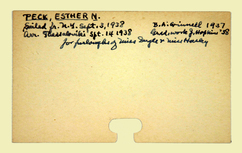 PECK, ESTHER N.
Sailed fr. N.Y. Sept. 3, 1938 B.A. Grinnell 1937
Arr. Thessaloniki Sept. 14 1938 Grad. work J. Hopkins '38
for furloughs of Misses Douglas & Miss Hosley